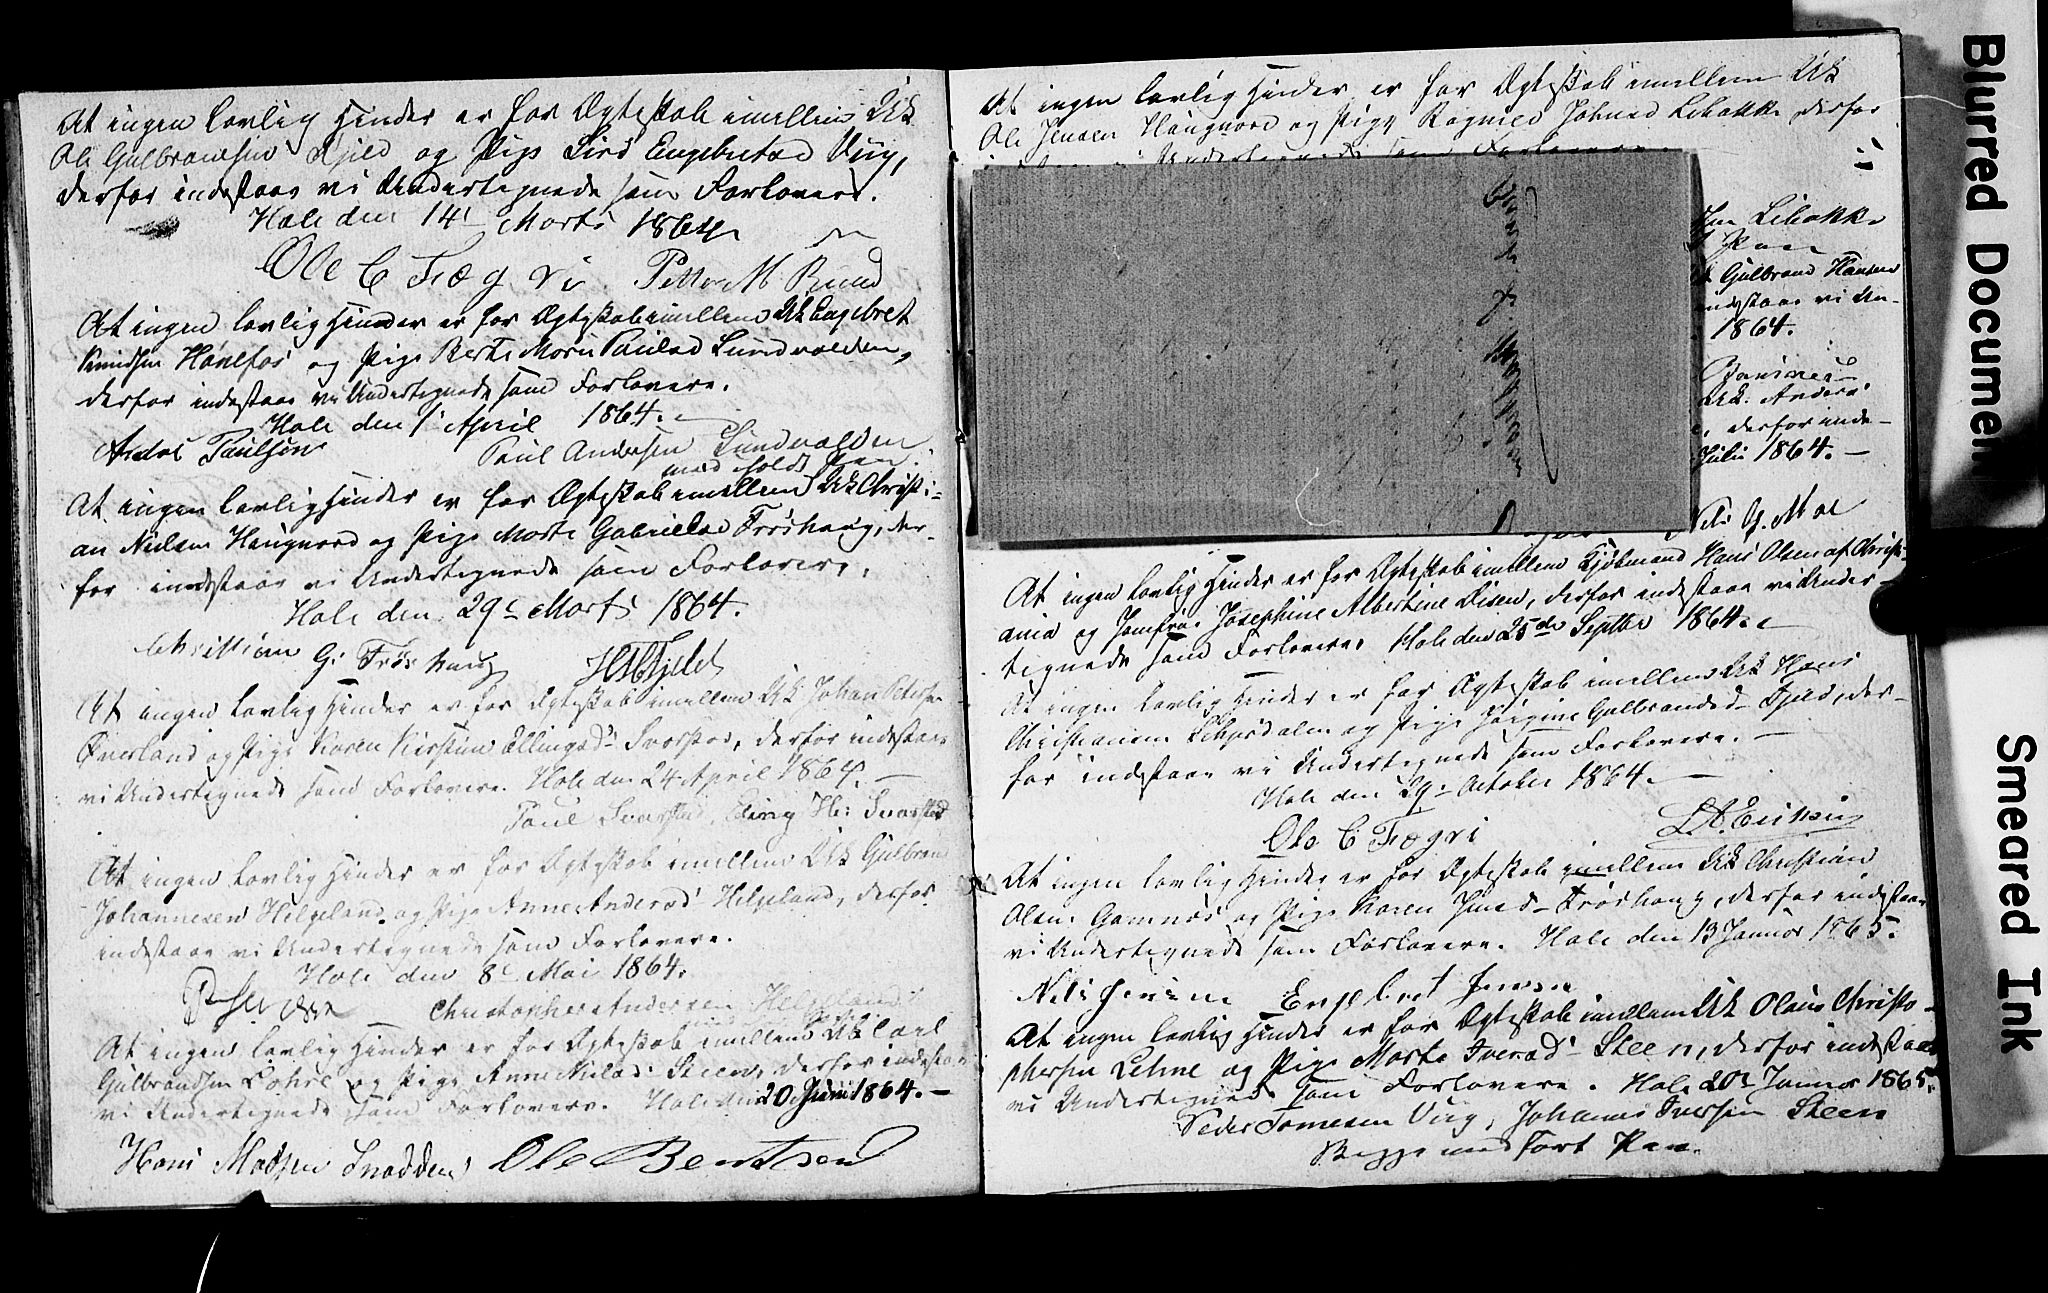 At ingen lovlig Hinder er for Ægteskab imellem Uk
Ole Gulbrandsen Fjeld og Pige Siri Engebretsd Viig,
derfor indestaar vi Undertegnede som Forlovere.
Hole den 14 Marts 1864
Ole C Fægri Petter M Ruud
At ingen lovlig Hinder er for Ægteskab imellem Uk Engebret
Knudsen Hønefos og Pige Berte Marie Paulsd Sundvolden,
derfor indestaar vi Undertegnede som Forlovere.
Hole den 1 April 1864.
Anders Paulsen Paul Andersen Sundvolden
med Holdt Pen.
At ingen lovlig Hinder er for Ægteskab imellem Uk Christi-
an Nielsen Haugnord og Pige Marte Gabrielsd Frøshaug, der-
for indestaar vi Undertegnede som Forlovere.
Hole den 29 Marts 1864.
Christian G: Frøshaug H Fjeld
At ingen lovlig Hinder er for Ægteskab imellem Uk Johan Petersen
Øverland og Pige Karen Kirstine Ellingsd Svarstad, derfor indestaar
vi Undertegnede som Forlovere. Hole den 24 April 1864. —
Paul Svarstad, Eling H: Svarstad
At ingen lovlig Hinder er for Ægteskab imellem Uk Gulbrand
Johannesen Helgeland og Pige Anne Andersd Helgeland, derfor
indestaar vi Undertegnede som Forlovere.
Hole den 8 Mai 1864.
Christopher Andersen Helgeland
At ingen lovlig Hinder er for Ægteskab imellem Uk Carl
Gulbrandsen Lohre og Pige Anne Nielsd Steen, derfor indestaar
vi Undertegnede som Forlovere. Hole den 20 Juni 1864. —
Hans Madsen Snadden Ole Berntsen
At ingen lovlig Hinder er for Ægteskab imellem Uk
Ole Jensen Haugnord og Pige Ragnild Johnsd Libakke derfor
Undertegnede som Forlovere
Libakke
Pen
Gulbrand Hansen
indestaar vi Un-
1864.
Uk. Anders
derfor inde-
Juli 1864. —
Nils G. Moe
At ingen lovlig Hinder er for Ægteskab imellem Kjøbmand Hans Olsen af Christi-
ania og Jomfrue Josephine Albertine Disen, derfor indestaar vi Under-
tegnede som Forlovere. Hole den 25de Septbr 1864.
At ingen lovlig Hinder er for Ægteskab imellem Uk Hans
Christiansen Lehnsdalen og Pige Jørgine Gulbrandsd Fjeld, der-
for indestaar vi Undertegnede som Forlovere. —
Hole den 29 October 1864. —
Ole C Fægri Eriksen
At ingen lovlig Hinder er for Ægteskab imellem Uk Christian
Olsen Gomnæs og Pige Karen Jensd Frøshaug, derfor indestaar
vi Undertegnede som Forlovere. Hole den 13 Januar 1865.
Nils Jensen Engebret Jensen
At ingen lovlig Hinder er for Ægteskab imellem Uk Olaus Christo-
phersen Lehne og Pige Marte Iversd Steen, derfor indestaar
vi Undertegnede som Forlovere. Hole 20 Januar 1865.
Peder Tomesen Viig, Johannes Iversen Steen
Begge med ført Pen.
Blurred Document
Smeared Ink